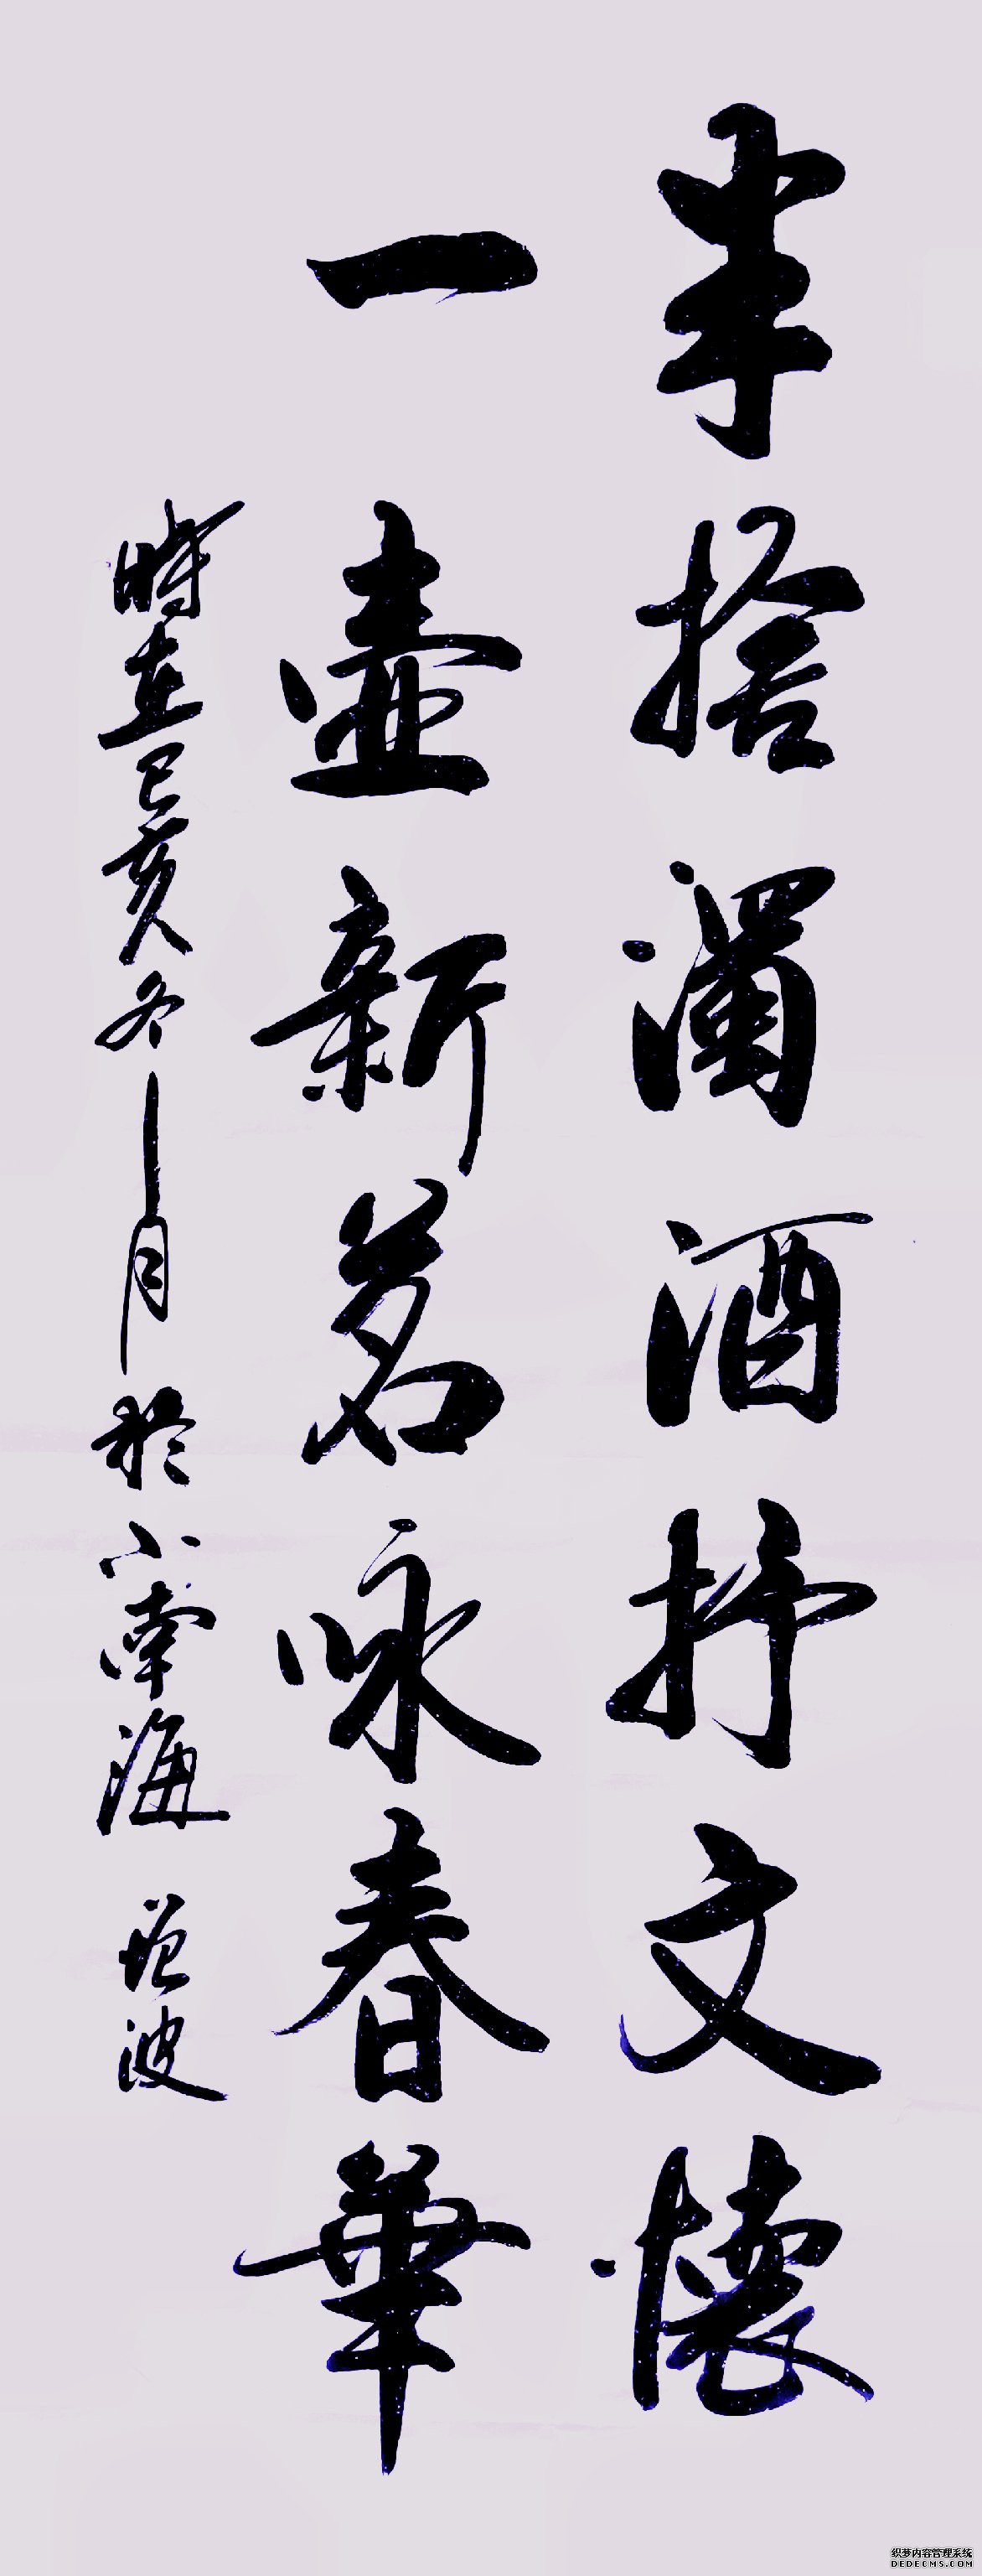 半拾濁酒抒文懷
一壺新茗咏春華
時在己亥冬十月於小南海 增波
织梦内容管理系统
DEDECMS.COM